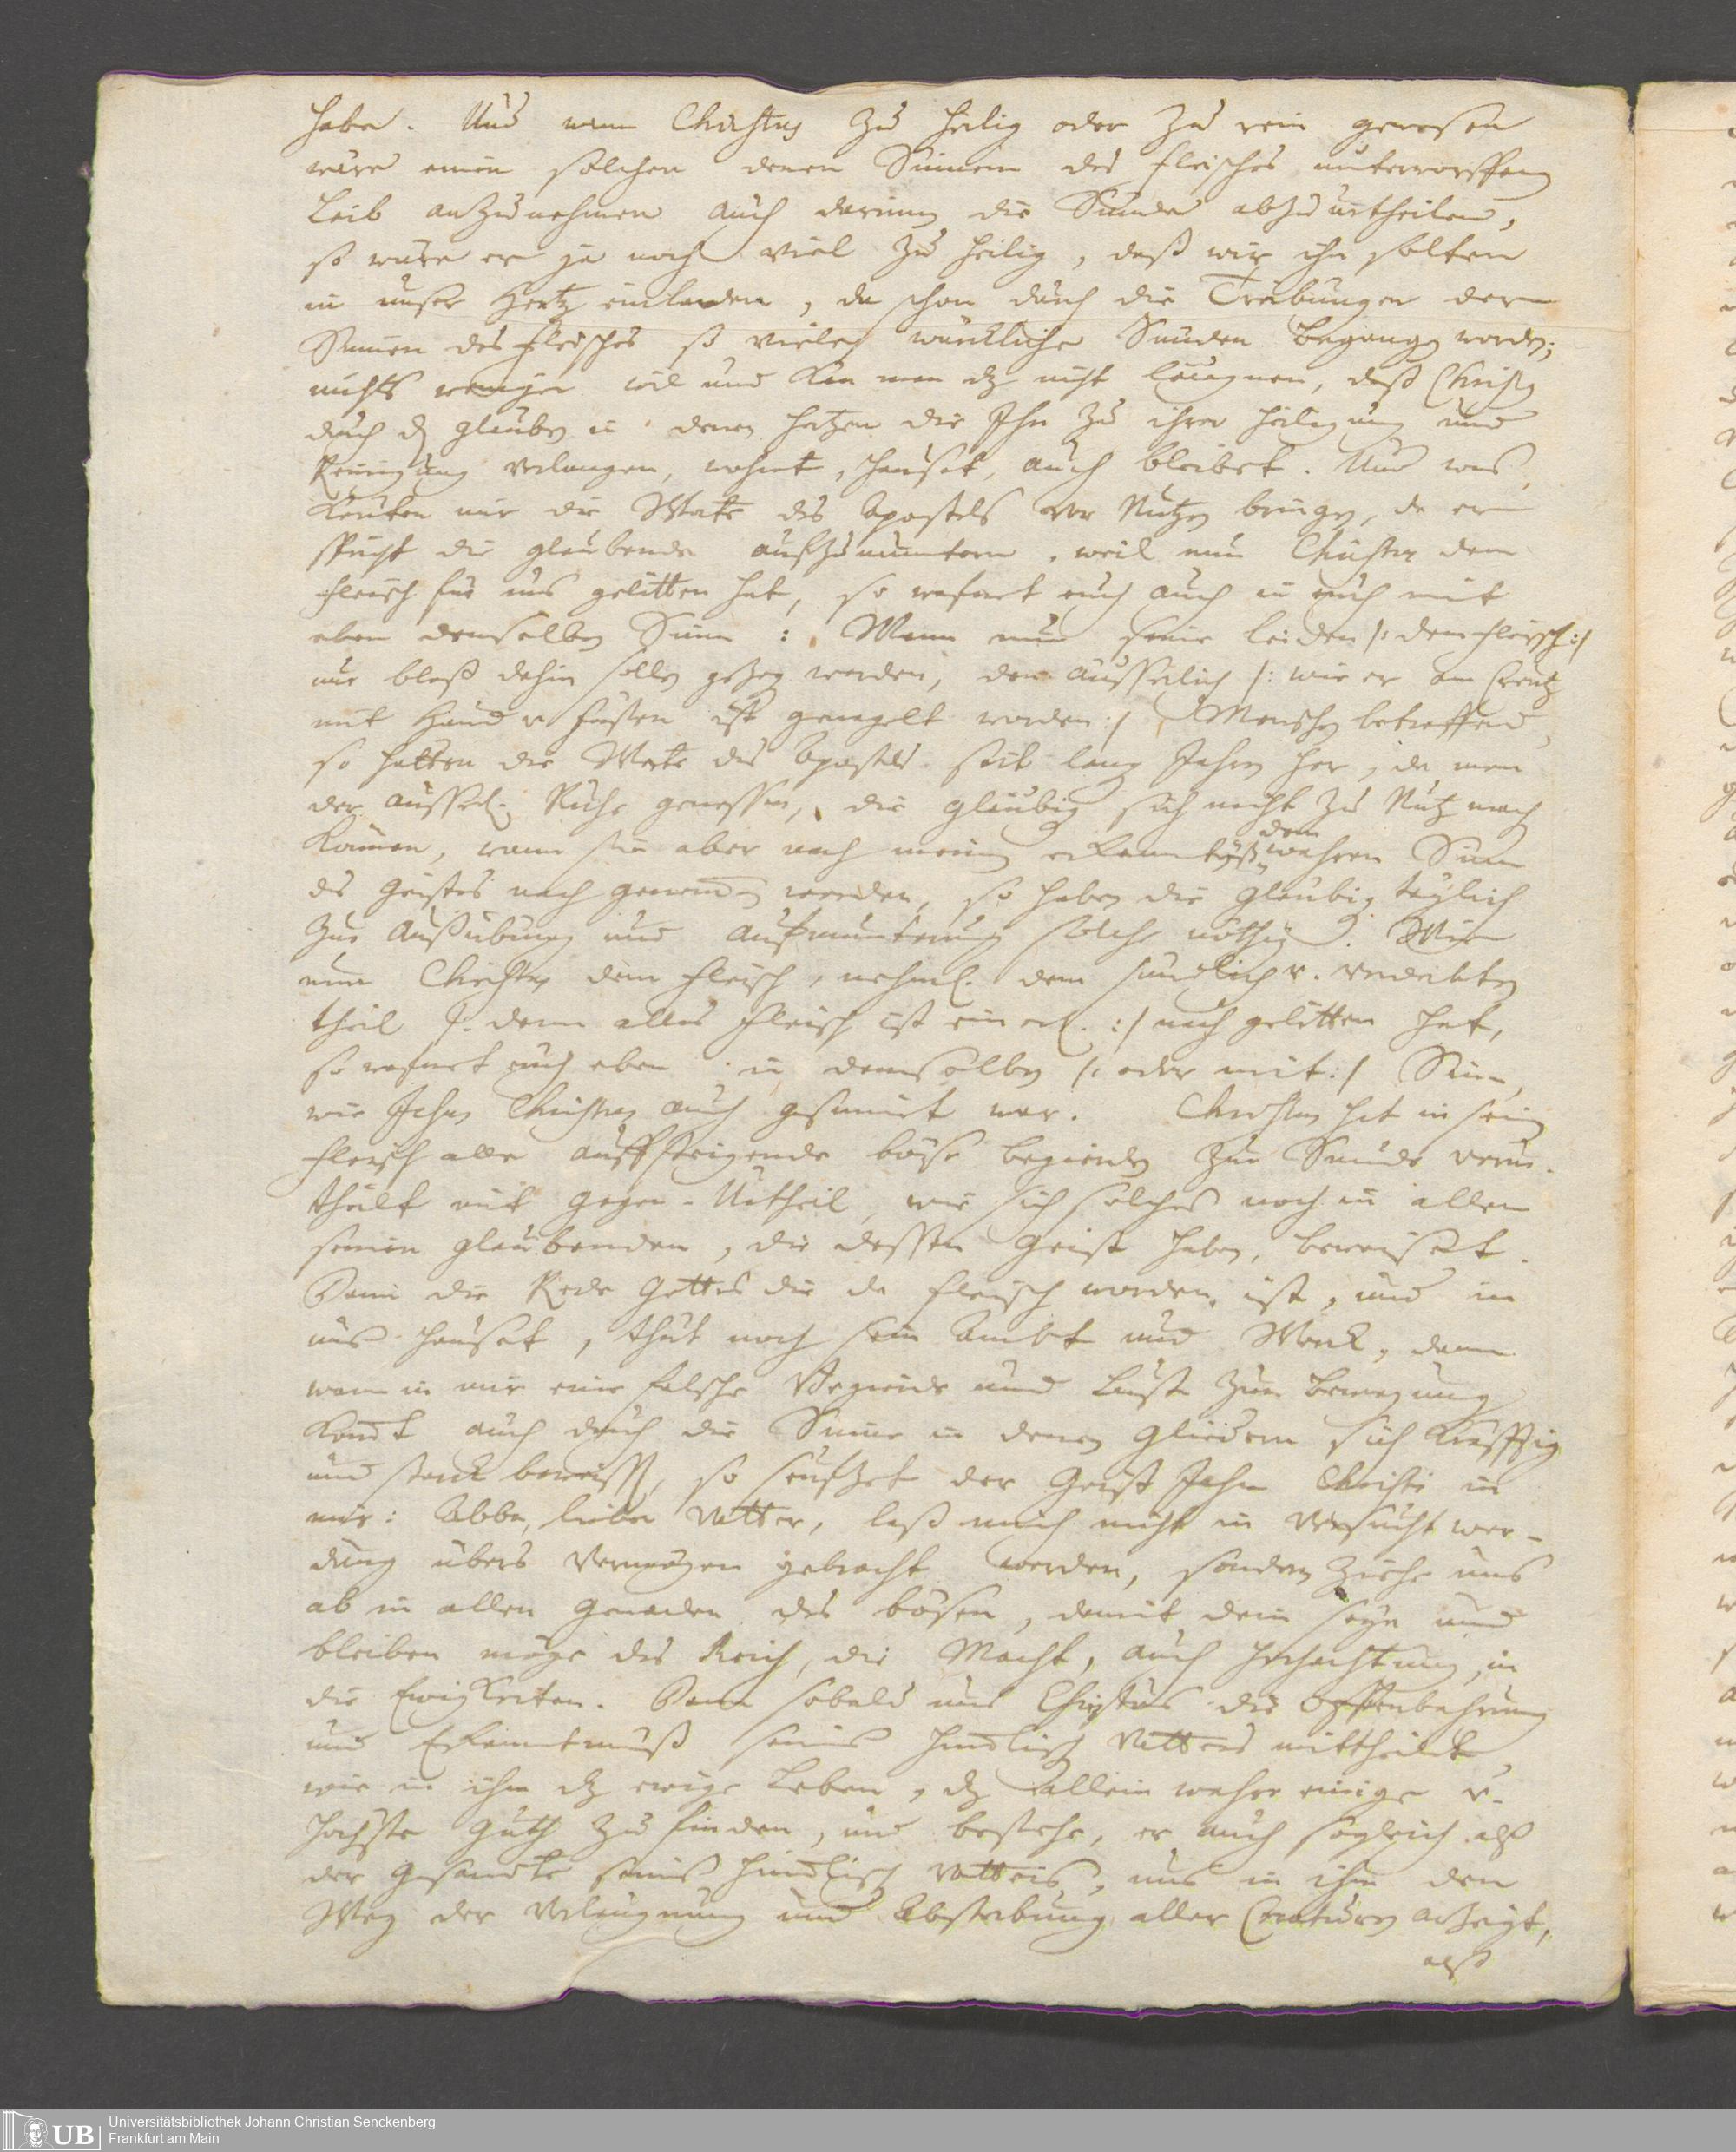 habe. Und wenn Christus zu heilig oder zu rein gewesen
wäre einen solchen denen Sinnen des fleisches unterworffenen
Leib anzunehmen auch darinnen die Sünde abzuurtheilen,
so wäre er ja noch viel zu heilig, daß wir ihn solten
in unser Hertz einladen, da schon durch die Treibungen derer
Sinnen des fleisches so viele würckliche Sünden begangen worden;
nichts weniger will und kan man dz nicht läugnen, daß Christus
durch den glauben in denen hertzen die Ihn zu ihrer heiligung und
Reinigung verlangen, wohnet, hauset, auch bleibet. Und was
könten mir die Worte des Apostels vor Nutzen bringen, da er
spricht die glaubende aufzumuntern, weil nun Christus dem
fleisch für uns gelitten hat, so wafnet euch auch in euch mit
eben demselben Sinn: Wann nun seine leiden /: dem fleisch :/
nur bloß dahin sollen gezogen werden, den äusserlich /: wie er am Creutz
mit Händ u. füssen ist genagelt worden :/ Menschen betreffend,
so hätten die Worte des Apostels seit lang Jahren her, da man
der äusserl. Ruhe genossen, die gläubigen sich nicht zu Nutz machen
können, wann sie aber nach meiner erkenntnüß dem wahren Sinn
des Geistes nach genommen werden, so haben die gläubigen täglich
zur Außübung und aufmunterung solche nöthig. Wie
nun Christus dem fleisch, nehml. dem sündlichen u. verderbten
theil /: denn alles fleisch ist einerl. :/ nach gelitten hat,
so wafnet euch eben in demselben /: oder mit :/ Sinn,
wie Jesus Christus auch gesinnet war. Christus hat in sein
fleisch alle auffsteigende böse begierden zur Sünde verur-
theilt mit Gegen-Urtheil, wie sich solches noch in allen
seinen glaubenden, die dessen Geist haben, beweiset.
Dann die Rede Gottes die da fleisch worden ist, und in
uns hauset, thut noch sein Ambt und Werck, denn
wann in mir eine falsche Begierde und Lust zur bewegung
kommt auch durch die Sinne in denen gliedern sich kräfftig
und starck beweist, so seufzet der Geist Jesu Christi in
mir: Abba, lieber Vatter, laß mich nicht in Versucht wer-
dung übers Vermögen gebracht werden, sondern ziehe uns
ab in allen Gnaden des bösen, damit dein seyn und
bleiben möge das Reich, die Macht, auch Hochachtung, in
die Ewigkeiten. Dann sobald uns Christus die Offenbahrung
und Erkenntnuß seines himmlisch Vatters mittheilt
wie in ihm dz ewige Leben, dz allein wahre einige u.
höchste Guth zu finden, und bestehe, er auch sogleich alß
der gesandte seines himmlisch Vatters, uns in ihm den
Weg der Verläugnung und Absterbung aller Creaturen anzeigt,
alß
Universitätsbibliothek Johann Christian Senckenberg
Frankfurt am Main
UB